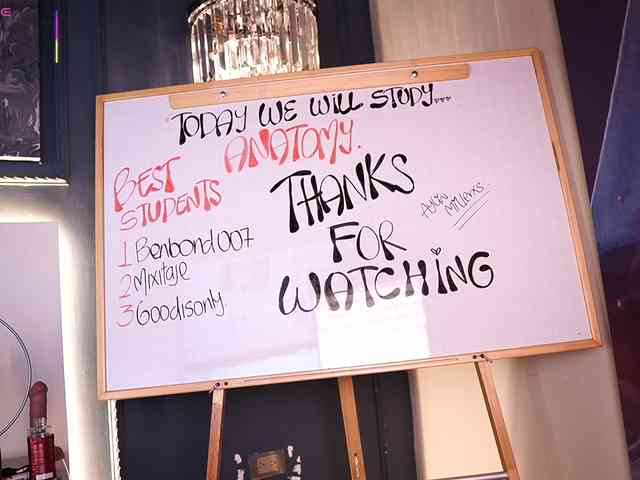 TODAY WE WILL STUDY...
ANATOMY.
BEST
STUDENTS
1 Benbond007
2 Mixitaje
3 Goodisonly.
THANKS
FOR
WATCHING
Millerxs